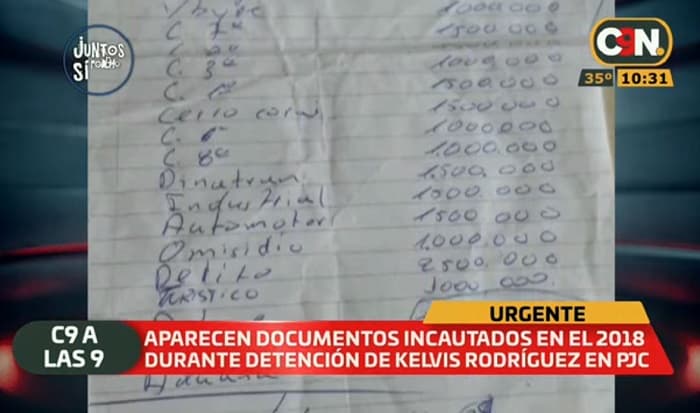 JUNTOS
SÍ
C9N.
35º 10:31
1000.000
C. 7ª 1500.000
1000.000
C. 3ª 1500.000
C. 1500.000
Cerro Corá 1000000
C. 6ª 1.000.000
C. 8ª 1.500.000
Dinatran 1500.000
Industrial 1500 000
Automotor 1.000.000
Omisidio 2500.000
Delito 1000.000.
Turístico
URGENTE
C9 A
LAS 9
APARECEN DOCUMENTOS INCAUTADOS EN EL 2018
DURANTE DETENCIÓN DE KELVIS RODRÍGUEZ EN PJC